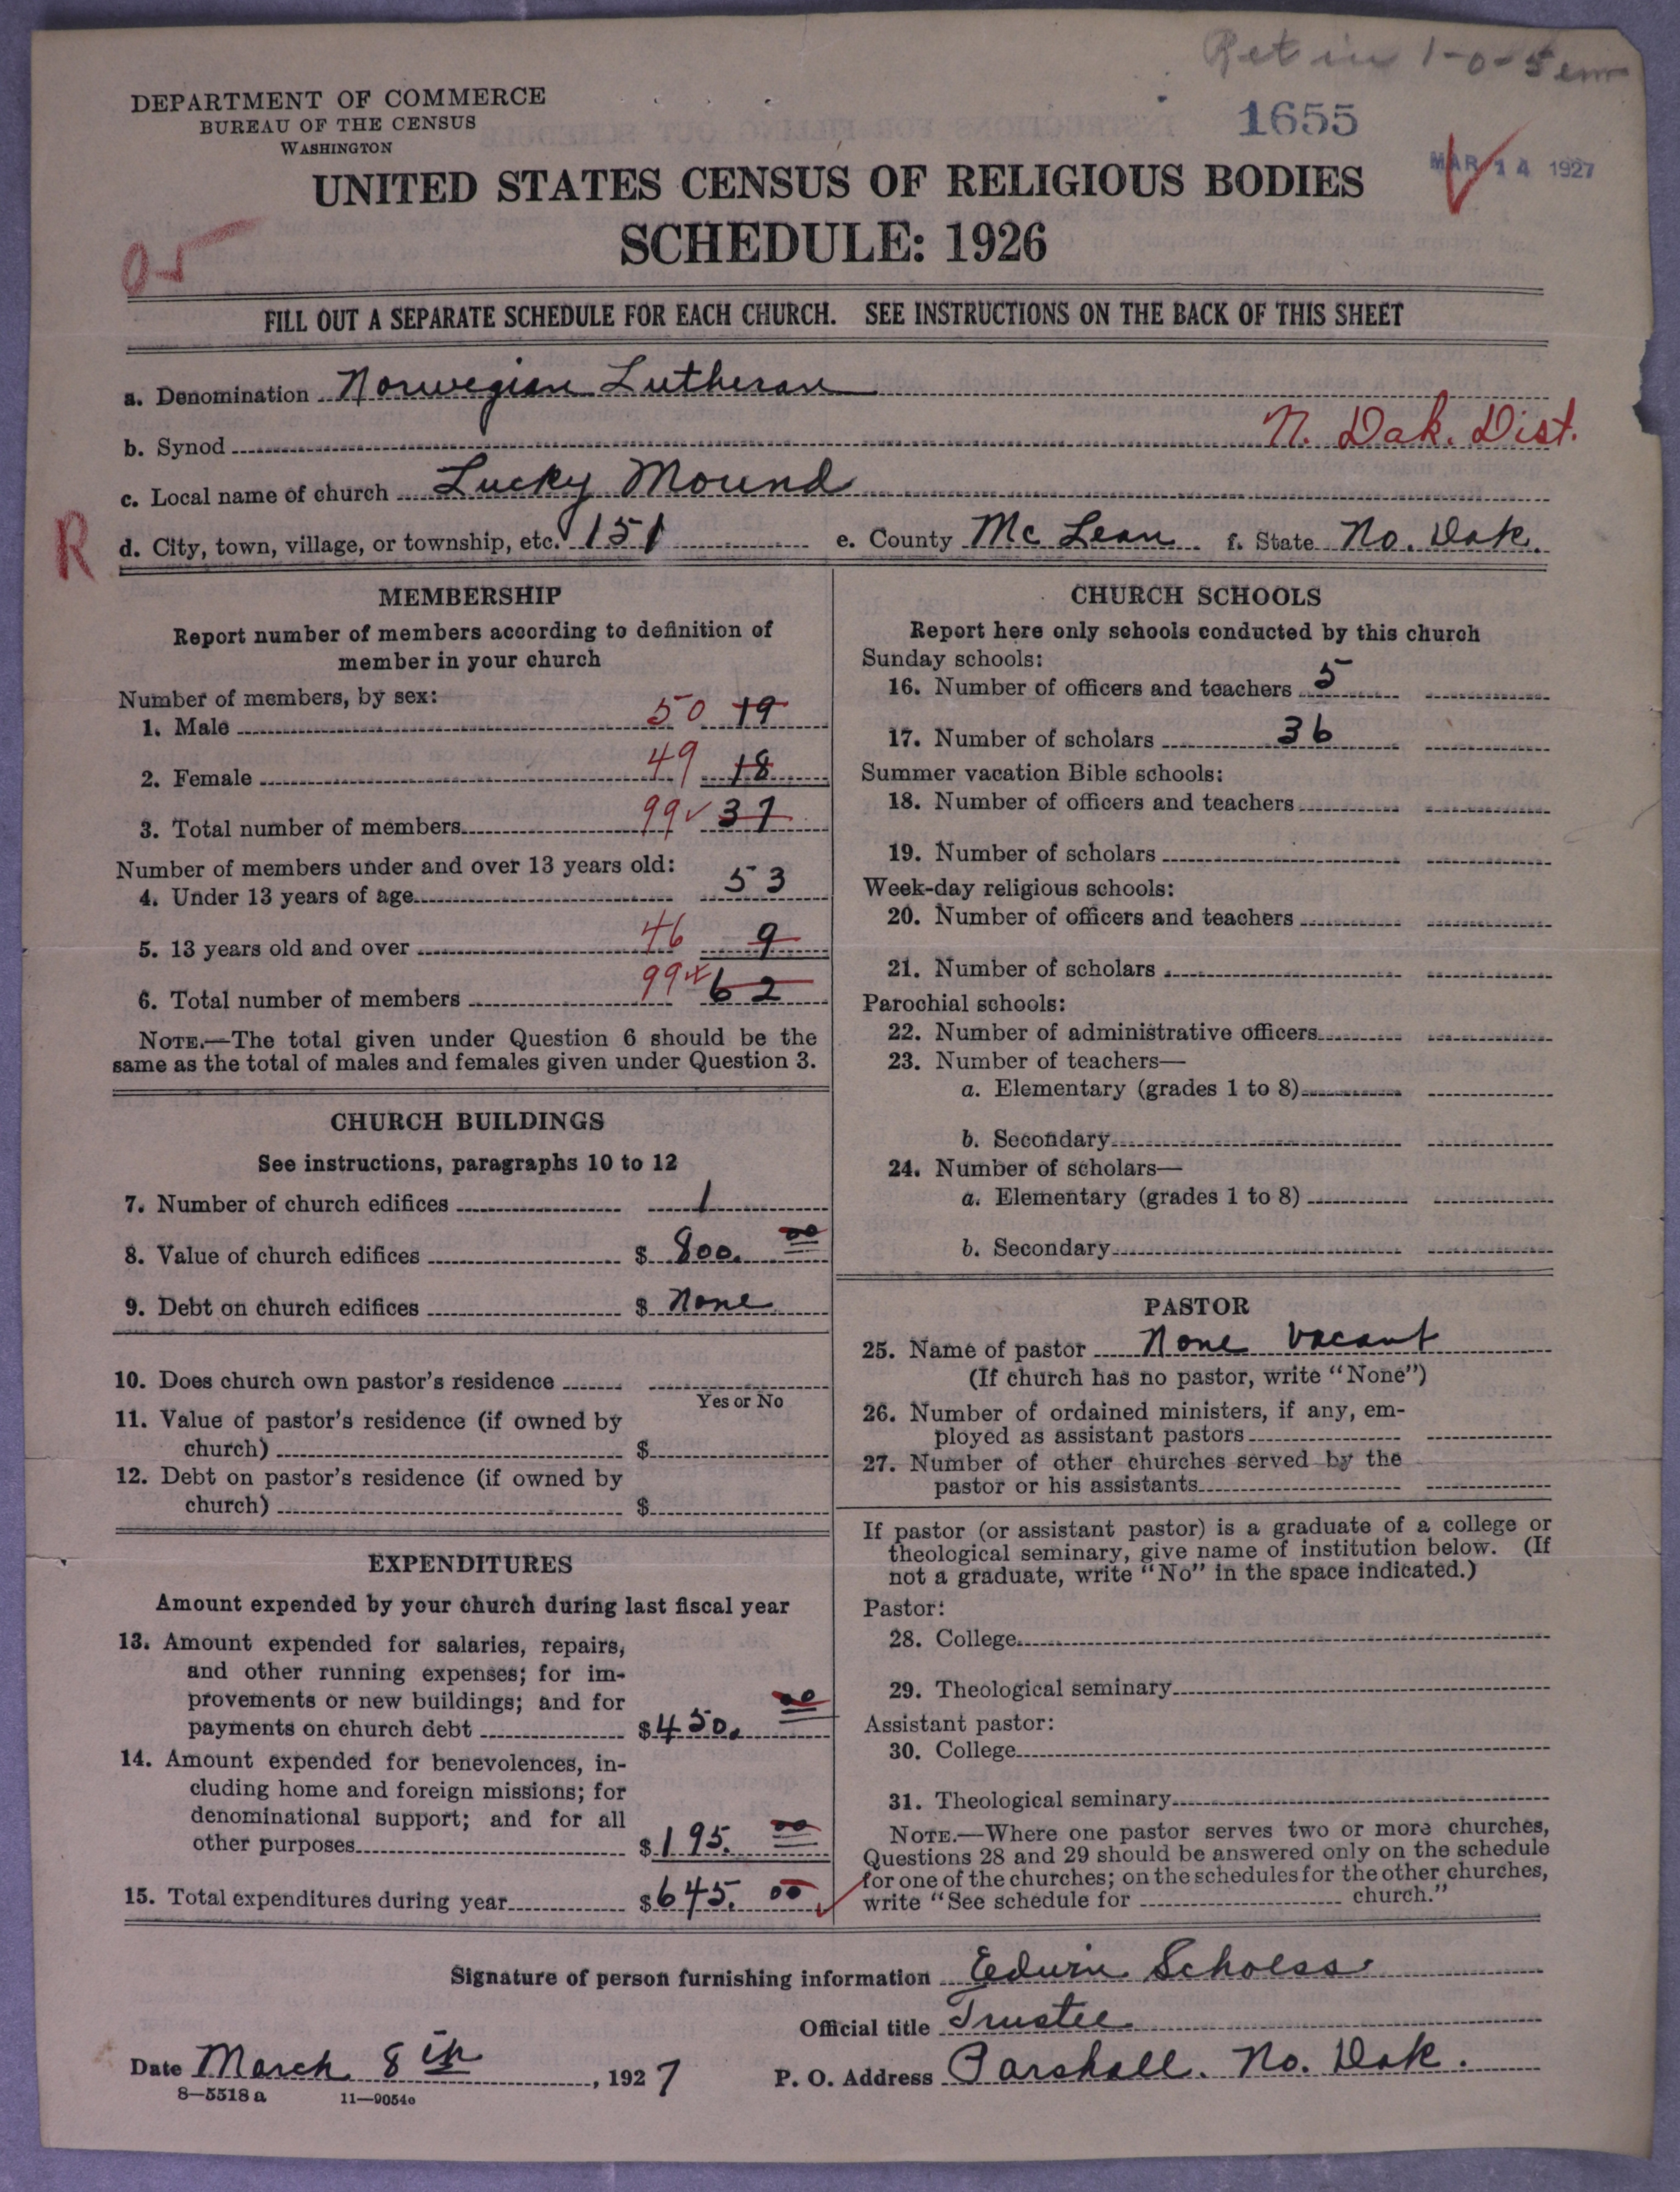 Ret in 1-0-5 em
DEPARTMENT OF COMMERCE
BUREAU OF THE CENSUS
WASHINGTON
1655
MAR 14 1927
UNITED STATES CENSUS OF RELIGIOUS BODIES
SCHEDULE: 1926
05
FILL OUT A SEPARATE SCHEDULE FOR EACH CHURCH. SEE INSTRUCTIONS ON THE BACK OF THIS SHEET
a. Denomination Norwegian Lutheran
b. Synod N. Dak. Dist.
c. Local name of church Lucky Mound
R
d. City, town, village, or township, etc. 151 e. County Mc Lean f. State No. Dak.
MEMBERSHIP
Report number of members according to definition of
member in your church
Number of members, by sex:
1. Male 50 19
2. Female 49 18
3. Total number of members 99 ✓ 37
Number of members under and over 13 years old:
4. Under 13 years of age 53
5. 13 years old and over 46 9
6. Total number of members 99 62
NOTE.—The total given under Question 6 should be the
same as the total of males and females given under Question 3.
CHURCH BUILDINGS
See instructions, paragraphs 10 to 12
7. Number of church edifices 1
8. Value of church edifices $ 800. 00
9. Debt on church edifices $ None
10. Does church own pastor's residence
Yes or No
11. Value of pastor's residence (if owned by
church) $
12. Debt on pastor's residence (if owned by
church) $
EXPENDITURES
Amount expended by your church during last fiscal year
13. Amount expended for salaries, repairs,
and other running expenses; for im-
provements or new buildings; and for
payments on church debt $ 450. 00
14. Amount expended for benevolences, in-
cluding home and foreign missions; for
denominational support; and for all
other purposes $ 195. 00
15. Total expenditures during year $ 645. 00
CHURCH SCHOOLS
Report here only schools conducted by this church
Sunday schools:
16. Number of officers and teachers 5
17. Number of scholars 36
Summer vacation Bible schools:
18. Number of officers and teachers
19. Number of scholars
Week-day religious schools:
20. Number of officers and teachers
21. Number of scholars
Parochial schools:
22. Number of administrative officers
23. Number of teachers—
a. Elementary (grades 1 to 8)
b. Secondary
24. Number of scholars—
a. Elementary (grades 1 to 8)
b. Secondary
PASTOR
25. Name of pastor None Vacant
(If church has no pastor, write "None")
26. Number of ordained ministers, if any, em-
ployed as assistant pastors
27. Number of other churches served by the
pastor or his assistants
If pastor (or assistant pastor) is a graduate of a college or
theological seminary, give name of institution below. (If
not a graduate, write "No" in the space indicated.)
Pastor:
28. College
29. Theological seminary
Assistant pastor:
30. College
31. Theological seminary
NOTE.—Where one pastor serves two or more churches,
Questions 28 and 29 should be answered only on the schedule
for one of the churches; on the schedules for the other churches,
write "See schedule for church."
Signature of person furnishing information Edwin Scholss
Official title Trustee
Date March 8th, 1927 P. O. Address Parshall. No. Dak.
8—5518 a 11—9054e